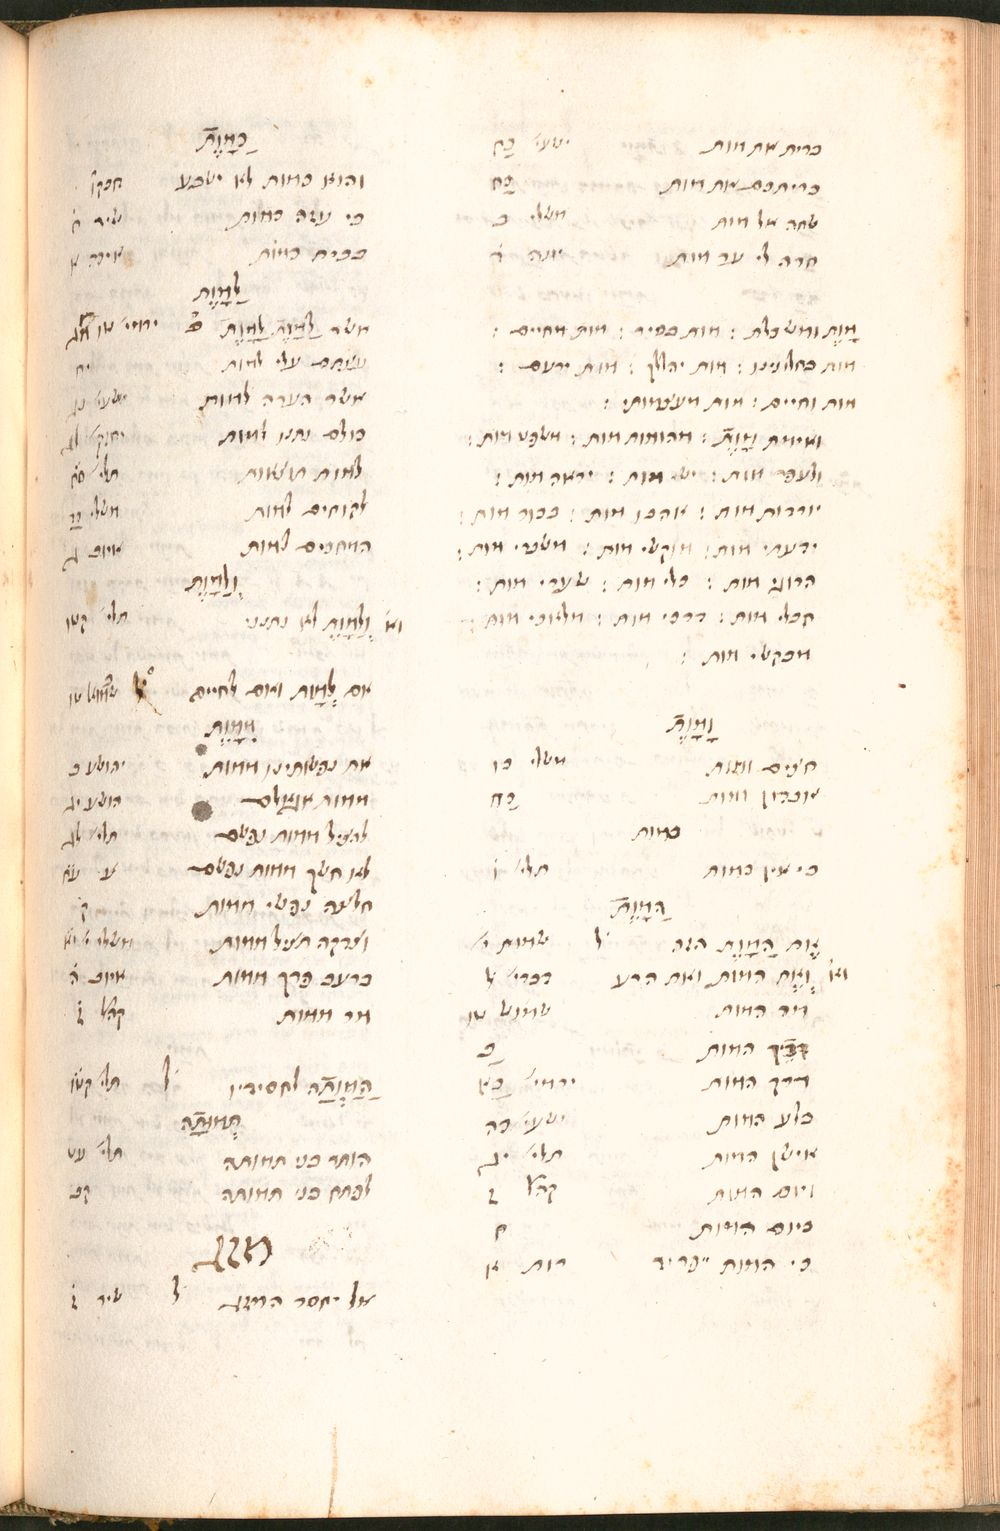 ברית את מות ישעי׳ כח
בריתכם את מות כח
שחה אל מות משלי ב
חרה לי עד מות יונה ד
מות ומשכלת : מות בסיר : מות מחיים :
מות בחלונינו : מות יהללך : מות ירעם :
מות וחיים : מות מעצמותי :
ואימת מות : מהומות מות : משפט מות :
ולעפר מות : ישי מות : יראה מות :
יורדות מות : אהבו מות : בכור מות :
ידעתי מות : מוקשי מות : משברי מות :
הרוגי מות : כלי מות : שערי מות :
חבלי מות : דרכי מות : מלאכי מות :
מבקשי מות :
וָמָוֶת
חצים ומות משלי כו
אובדון ומות כח
במות
כי אין במות תלי׳ ו
הַמָּוֶת
את המות הזה ל׳ שמות י׳
וא׳ ואת המות ואת הרע דברי׳ ל
מר המות שמוש טו
המות כ
דרך המות ירמי׳ כא
בלע המות ישעי׳ כה
אישן המות תלי׳ יג
ויום המות קהל׳ ז
ביום המות ח
כי המות יפריד רות א
כַּמָּוֶת
והוא כמות לא ישבע חבקו׳
כי עזה כמות שיר ח
בבית כמות איכה א
לַמָּוֶת
אשר למות למות ב׳ ירמי׳ טו
עצתם עלי למות יח
אשר הערה למות ישעי׳ נג
כולם נתנו למות יחזק׳ לא
למות תוצאות תלי׳ סח
לקוחים למות משלי כד
המחכים למות איוב ג
וְלַמָּוֶת
וא׳ ולמות לא נתנני תלי׳ קיח
אם למות ואם לחיים ל׳ שמוא׳ טו
מִמָּוֶת
את נפשותינו ממות יהושע ב
ממות אגאלם הושע יג
להציל ממות נפשם תלי׳ לג
לא חשך ממות נפשם ע׳ עח
חלצת נפשי ממות ק
וצדקה תציל ממות משלי יא
ברעב פדך ממות איוב ה
מר ממות קהל׳ ז
הַמָּוְתָה לחסידיו ל׳ תלי׳ קטו
תְמוּתָה
הותר בני תמותה תלי׳ עט
לפתח בני תמותה קב
מזג
אל יחסר המזג ל׳ שיר ז